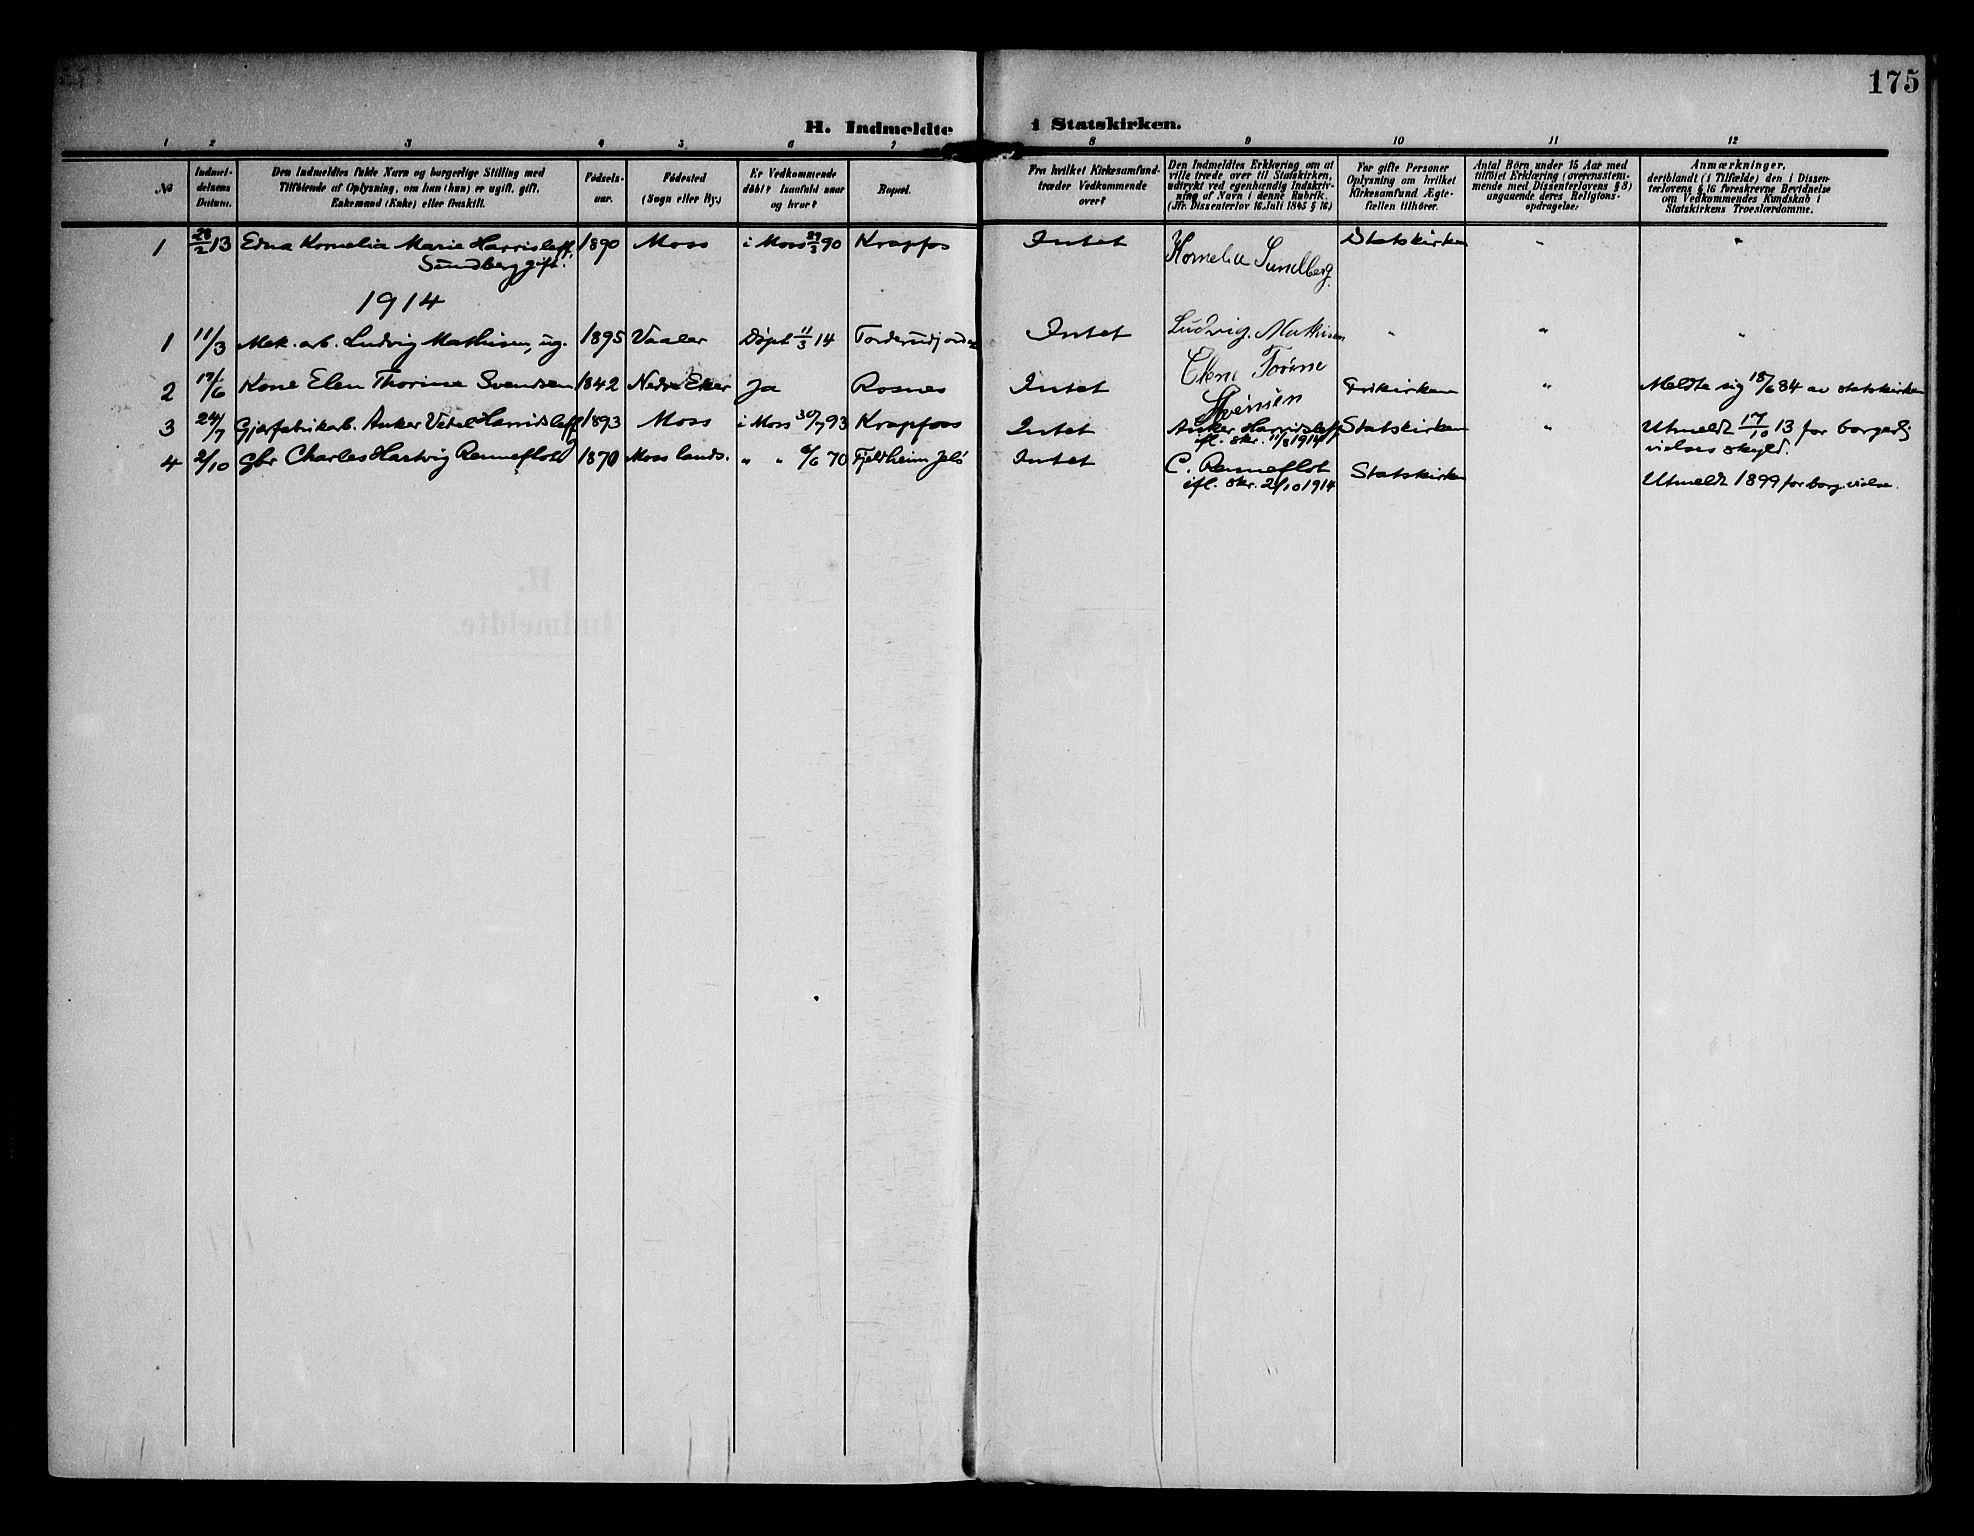 175
H. Indmeldte i Statskirken.
1 2 3 4 5 6 7 8 9 10 11 12
No
Indmel-
delsens
Datum.
Den Indmeldtes fulde Navn og borgerlige Stilling med
Tilføiende af Oplysning, om han (hun) er ugift, gift,
Enkemand (Enke) eller fraskilt.
Födsels-
aar.
Födested
(Sogn eller By.)
Er Vedkommende
döbt? Isaafald naar
og hvor?
Bopæl.
Fra hvilket Kirkesamfund-
træder Vedkommende
over?
Den Indmeldtes Erklæring om at
ville træde over til Statskirken,
udtrykt ved egenhændig Indskriv-
ning af Navn i denne Rubrik.
(Jfr. Dissenterlov 16. Juli 1845 § 16)
For gifte Personer
Oplysning om hvilket
Kirkesamfund Ægte-
fællen tilhörer.
Antal Börn under 15 Aar med
tilföiet Erklæring (overensstem-
mende med Dissenterlovens § 8)
angaaende deres Religions-
opdragelse:
Anmærkninger,
deriblandt (i Tilfælde) den i Dissen-
terlovens § 16 foreskrevne Bevidnelse
om Vedkommendes Kundskab i
Statskirkens Troeslærdomme.
1 28/2 13 Edna Kornelia Marie Harrisleff 1890 Moss i Moss 29/3 90 Krapfos Intet Kornelia Sundberg. Statskirken " "
Sundberg gift.
1914
1 11/3 Mek. arb. Ludvig Mathisen, ug. 1895 Vaaler Døpt 11/3 14 Intet Ludvig. Mathisen " " "
2 17/6 Kone Elen Thorine Svendsen 1842 Nedre Eker Ja Rosnes Intet Elene Torine Frikirken " Meldte sig 18/6 84 av statskirken
3 24/7 Gjærfabrikarb. Anker Harrisleff 1893 Moss i Moss 30/7 93 Krapfoss Intet Anker Harrisleff Statskirken " Utmeldt 17/10 13 for borgerlig
ifl. skr. 11/8 1914
vielses skyld.
4 2/10 Gbr Charles Hartvig Renneflot 1870 Moss lands. " " 6/6 70 Fjeldheim Jelø Intet C. Renneflot Statskirken
ifl. skr. 2/10 1914
Utmeldt 1899 for borg. vielse.
H.
Indmeldte.